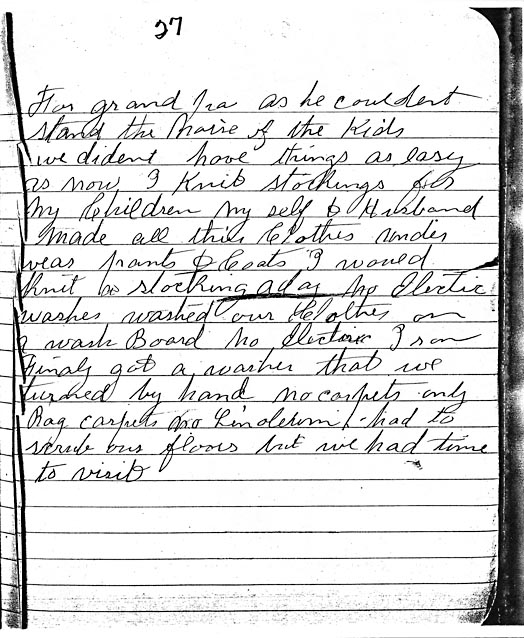 27
For grand pa as he couldent
stand the Noise of the Kids
we dident have things as easy
as now I Knit stockings for
My Children My self & Husband
Made all thier Clothes under
wear pants & Coats I would
Knit a stocking a day No Electric
washes washed our Clothes on
a wash Board No Electric Iron
Finaly got a washer that we
turned by hand no carpets only
Rag carpets No Linoleum had to
scrub our floors but we had time
to visit